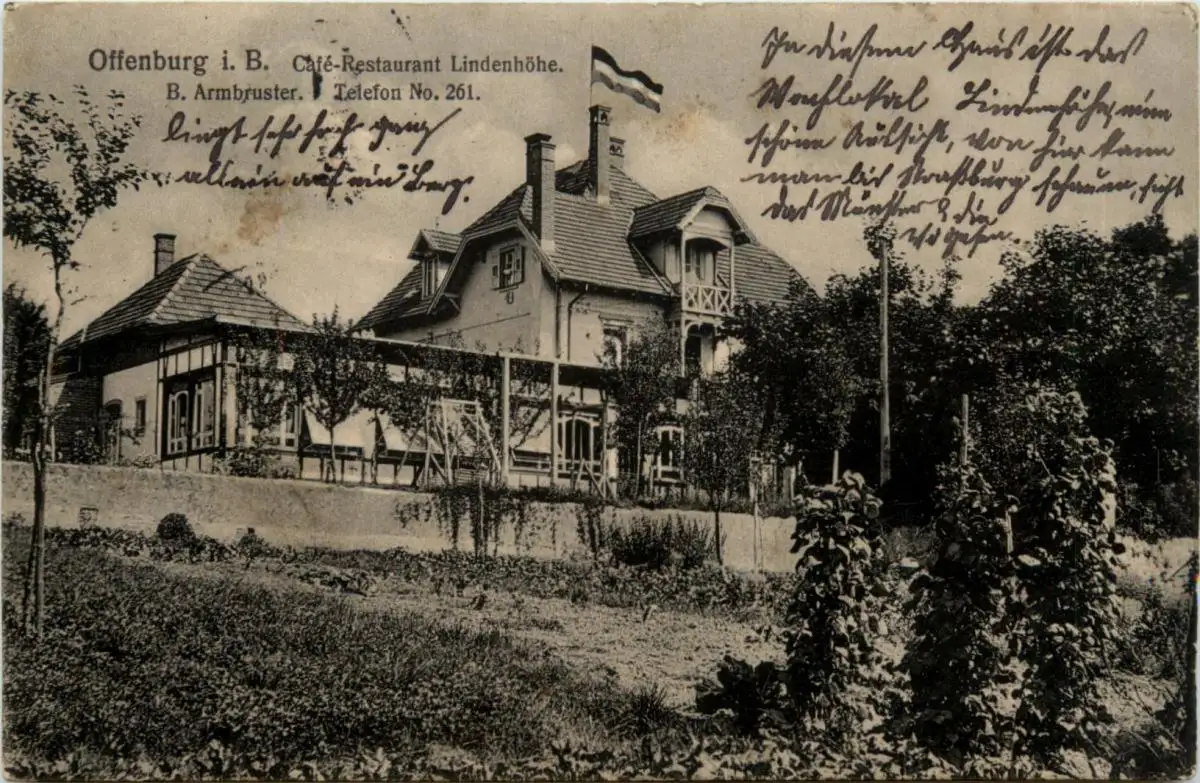 Offenburg i. B. Café-Restaurant Lindenhöhe.
B. Armbruster. Telefon No. 261.
liegt sehr hoch ganz
allein auf ein Berg.
In diesem Haus ist das
Wachlokal Lindenhöhe, eine
schöne Aussicht, von hier kann
man bis Straßburg schauen, sieht
das Münster & die
Vogesen